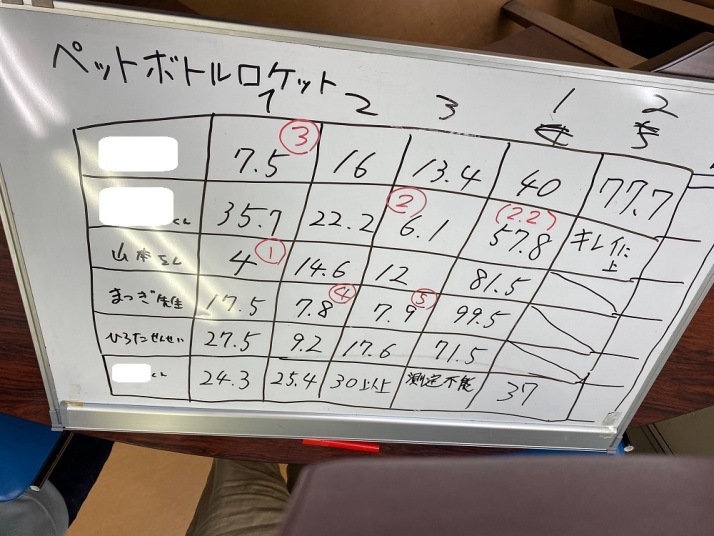 ペットボトルロケット
1 2 3 1 2
7.5 ③ 16 13.4 40 77.7
くん 35.7 22.2 ② 6.1 (2.2) 57.8 キレイに上
山本くん 4 ① 14.6 12 81.5
まつぎ先生 17.5 7.8 ④ 7.9 ⑤ 99.5
ひろたせんせい 27.5 9.2 17.6 71.5
くん 24.3 25.4 30以上 測定不能 37